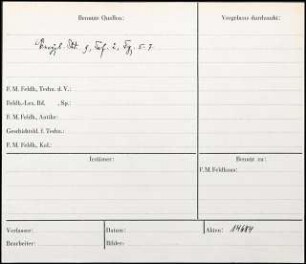 Benutzte Quellen:
Vergebens durchsucht:
9, Taf. 2, Fg. 5-7.
F. M. Feldh., Techn. d. V.:
Feldh.-Lex. Bd. , Sp.:
F. M. Feldh., Antike:
Geschichtsbl. f. Techn.:
F. M. Feldh., Kal.:
Irrtümer:
Benutzt zu:
F.M.Feldhaus:
Verfasser:
Datum:
Akten: 14684
Bearbeiter:
Bilder: